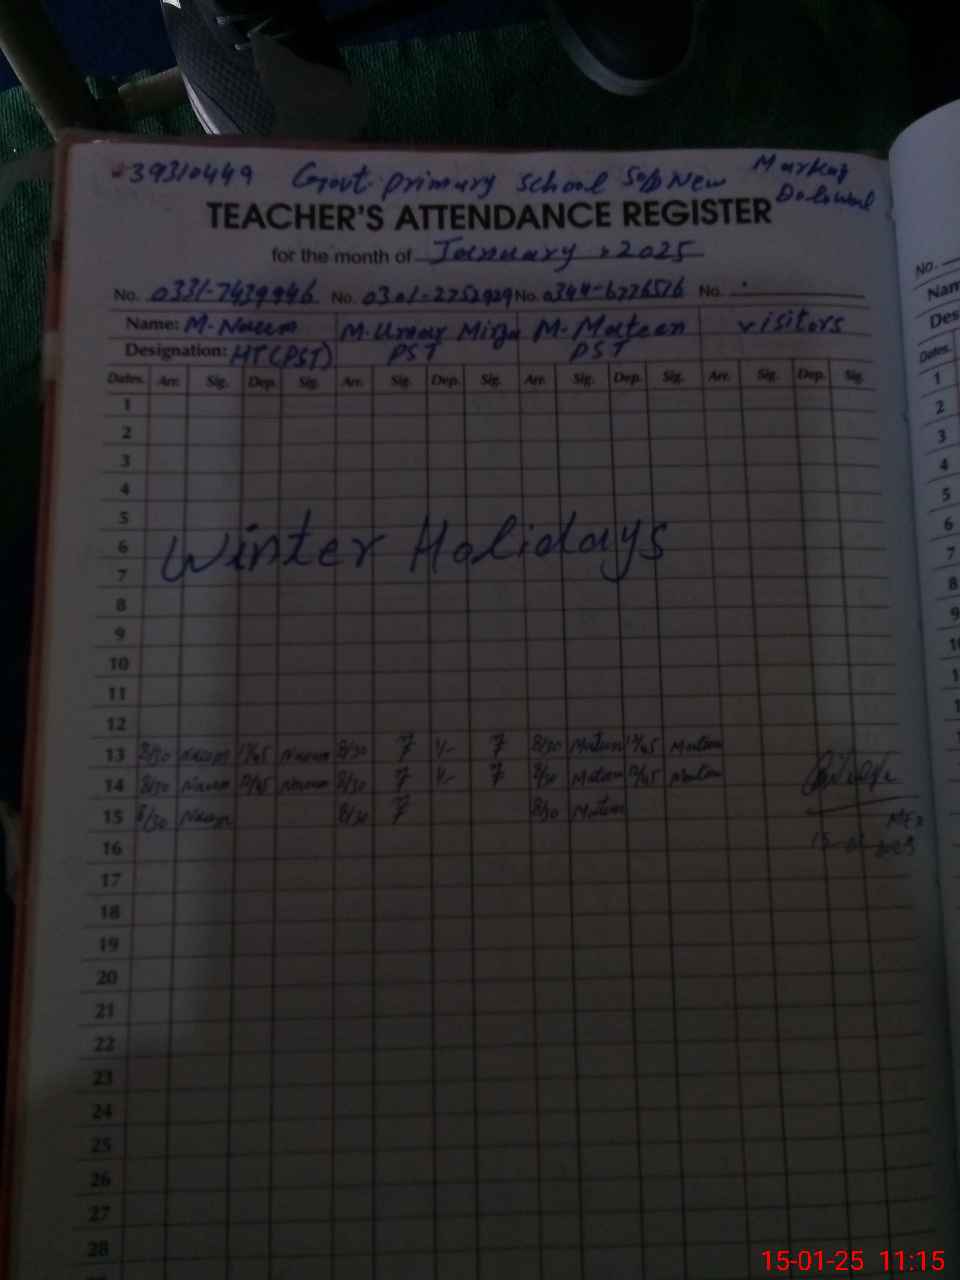 39310449 Govt. primary school New Markaz
TEACHER'S ATTENDANCE REGISTER
for the month of January, 2025
No. 0331-7439946 No. 0301-2752929 No. 0344-6776516 No.
Name: M. Naeem M. Umar Mirza M. Mateen visitors
Designation: HT (PST) PST PST
Dates. Arr. Sig. Dep. Sig. Arr. Sig. Dep. Sig. Arr. Sig. Dep. Sig. Arr. Sig. Dep. Sig.
1
2
3
4
5
6
Winter Holidays
7
8
9
10
11
12
13 8/30 Naeem 12/45 Naeem 8/30 8/30 Mateen 12/45 Mateen
14 8/30 Naeem 12/45 Naeem 8/30 8/30 Mateen 12/45 Mateen
15 8/30 Naeem 8/30 8/30 Mateen
16
17
18
19
20
21
22
23
24
25
26
27
28
No.
Dates.
1
2
3
4
5
6
7
8
15-01-25 11:15